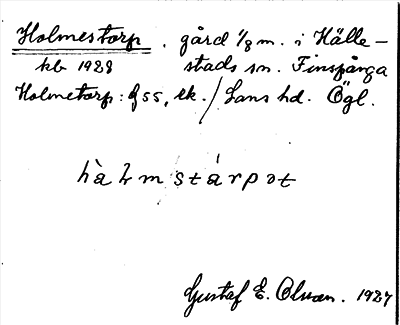 Holmestorp . gård 1/8 m. i Hälle-
kb 1928 stads sn. Finspånga
Holmetorp: G 55, ek. / Lans hd. Ögl.
hàlmstárpət
Gustaf E. Olsson. 1927